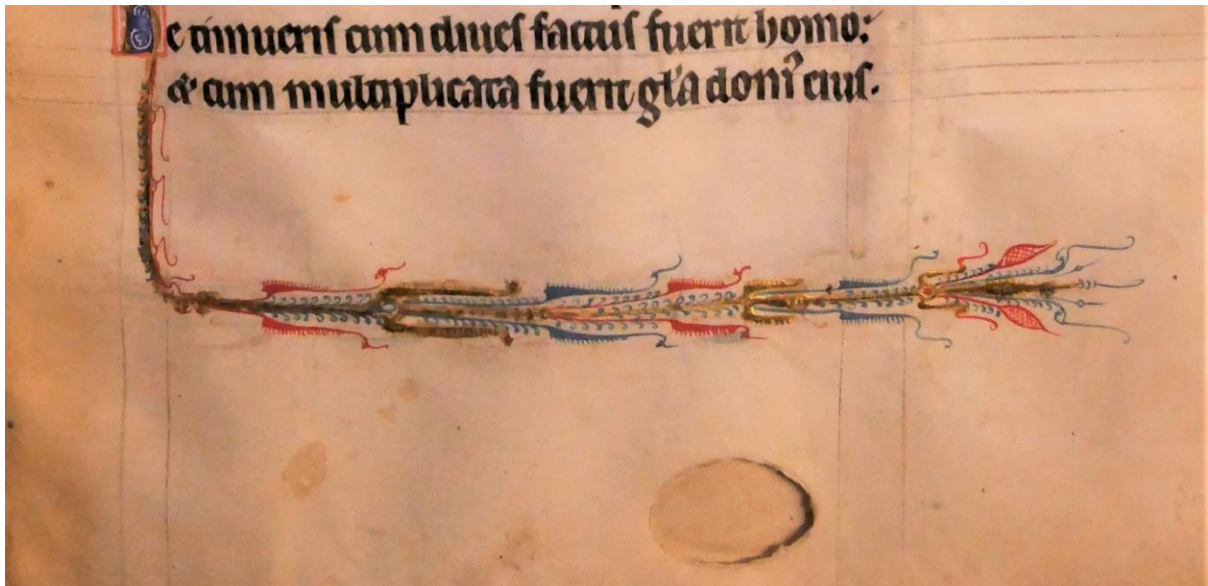 Ne timueris cum diues factus fuerit homo:
& cum multiplicata fuerit gl̓a domꝰ eius.